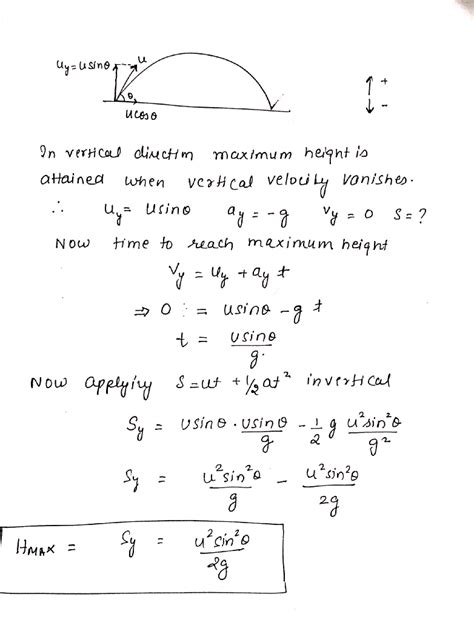 uy = usinθ u
θ
ucosθ
↑ +
↓ -
In vertical direction maximum height is
attained when vertical velocity vanishes.
∴ uy = usinθ ay = -g vy = 0 S = ?
Now time to reach maximum height
vy = uy + ay t
⇒ 0 = usinθ - g t
t = usinθ / g.
Now applying S = ut + ½ at² in vertical
Sy = usinθ · usinθ / g - 1/2 g u²sin²θ / g²
Sy = u²sin²θ / g - u²sin²θ / 2g
HMAX = Sy = u²sin²θ / 2g